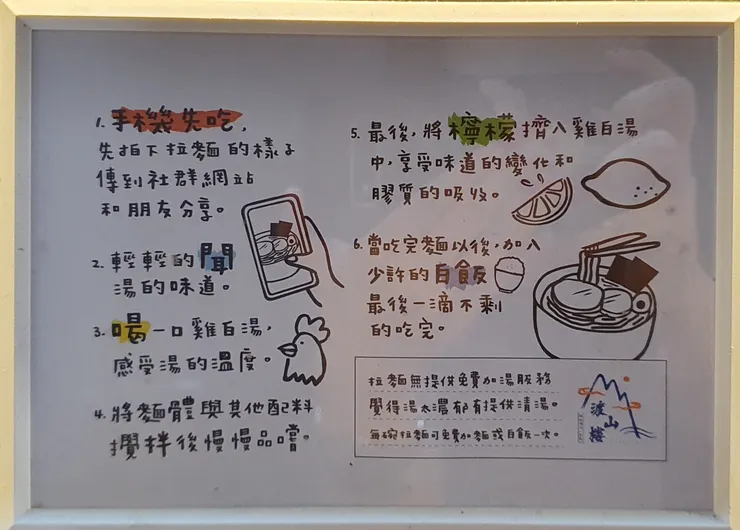 1. 手機先吃,
先拍下拉麵的樣子
傳到社群網站
和朋友分享。
2. 輕輕的聞
湯的味道。
3. 喝一口雞白湯,
感受湯的溫度。
4. 將麵體與其他配料
攪拌後慢慢品嚐。
5. 最後,將檸檬擠入雞白湯
中,享受味道的變化和
膠質的吸收。
6. 當吃完麵以後,加入
少許的白飯
最後一滴不剩
的吃完。
拉麵無提供免費加湯服務
覺得湯太濃郁有提供清湯。
每碗拉麵可免費加麵或白飯一次。
渡山樓